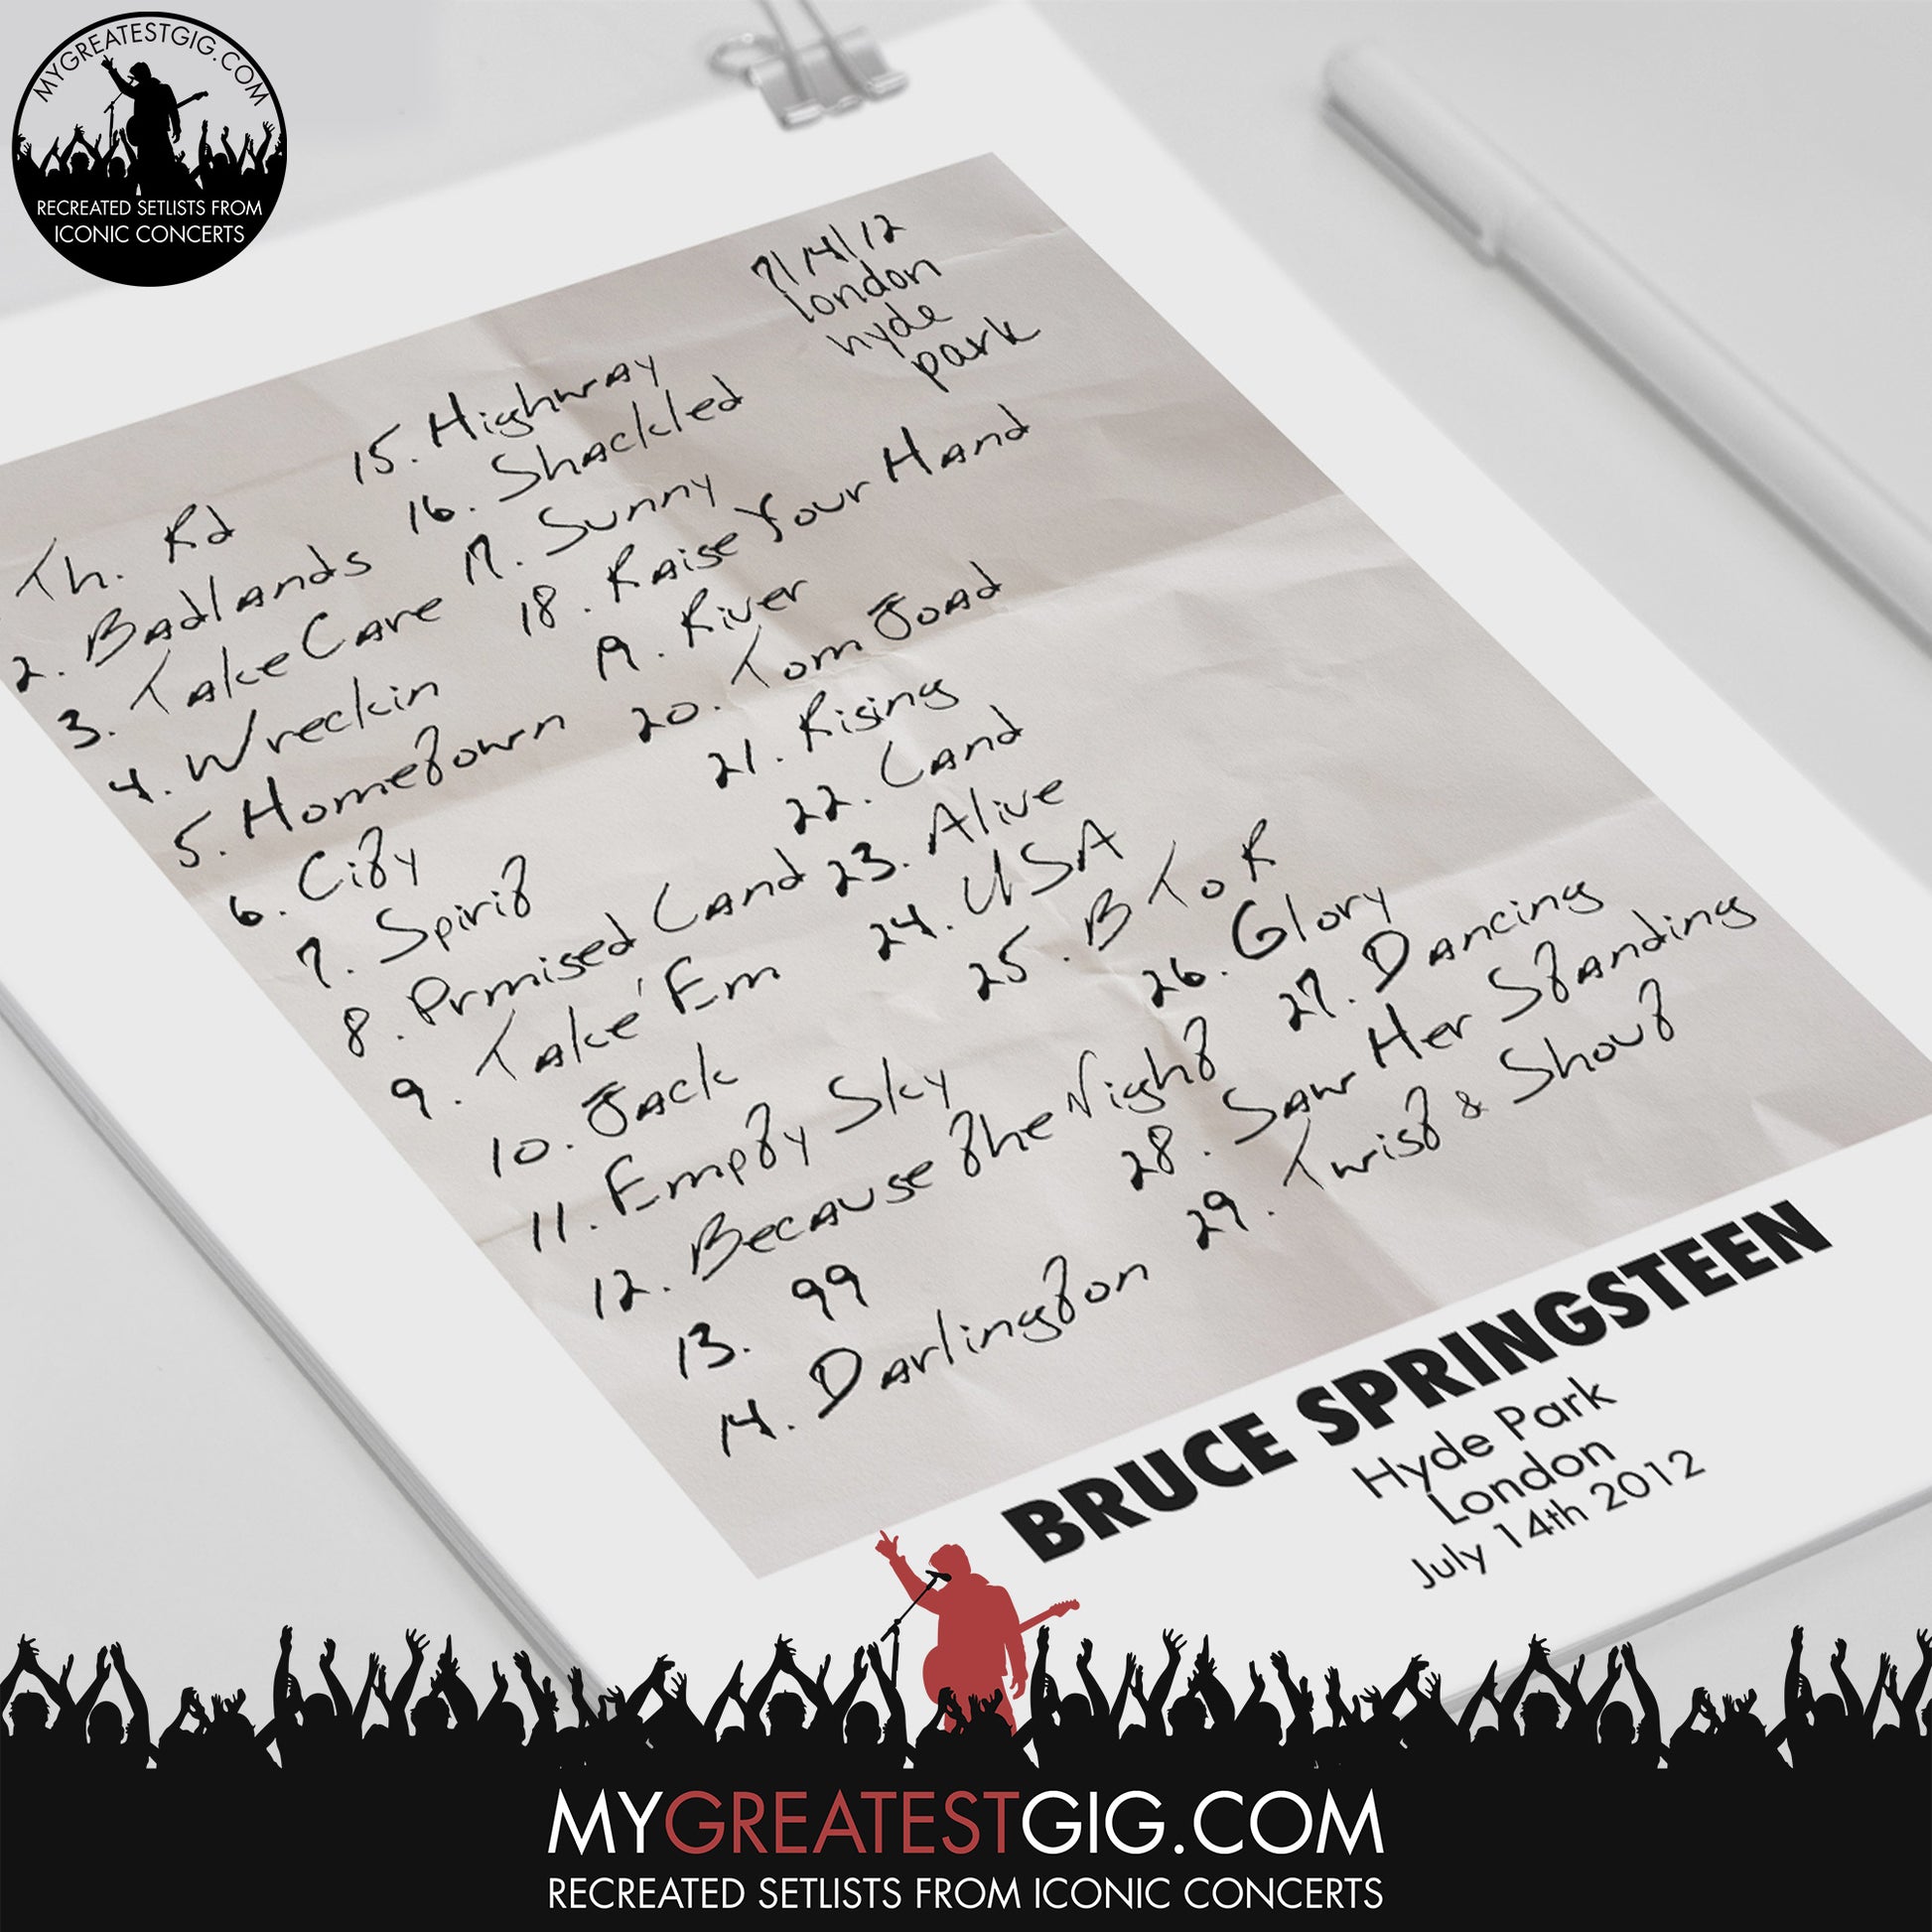 MYGREATESTGIG.COM
RECREATED SETLISTS FROM
ICONIC CONCERTS
7/14/12
london
hyde
park
Th. Rd
2. Badlands
3. Take Care
4. Wreckin
5. Hometown
6. City
7. Spirit
8. Prmised Land
9. Take 'Em
10. Jack
11. Empty Sky
12. Because the Night
13. 99
14. Darlington
15. Highway
16. Shackled
17. Sunny
18. Raise Your Hand
19. River
20. Tom Joad
21. Rising
22. Land
23. Alive
24. USA
25. B To R
26. Glory
27. Dancing
28. Saw Her Standing
29. Twist & Shout
BRUCE SPRINGSTEEN
Hyde Park
London
July 14th 2012
MYGREATESTGIG.COM
RECREATED SETLISTS FROM ICONIC CONCERTS